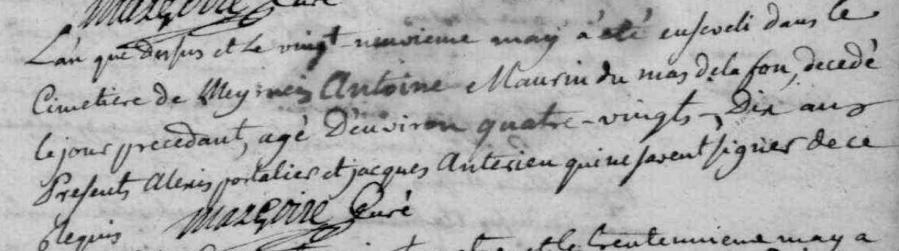 mazzoire Curé
L'an que dessus et le vingt-neuvieme may à eté enseveli dans le
Cimetiere de Meyrueis Antoine Maurin du mas de la fon, decedé
le jour precedant, agé D'environ quatre-vingts-Dix ans
Presents Alexis portalier et jacques Anterieu qui ne savent signer de ce
Requis mazzoire Curé
et le trentunieme may a